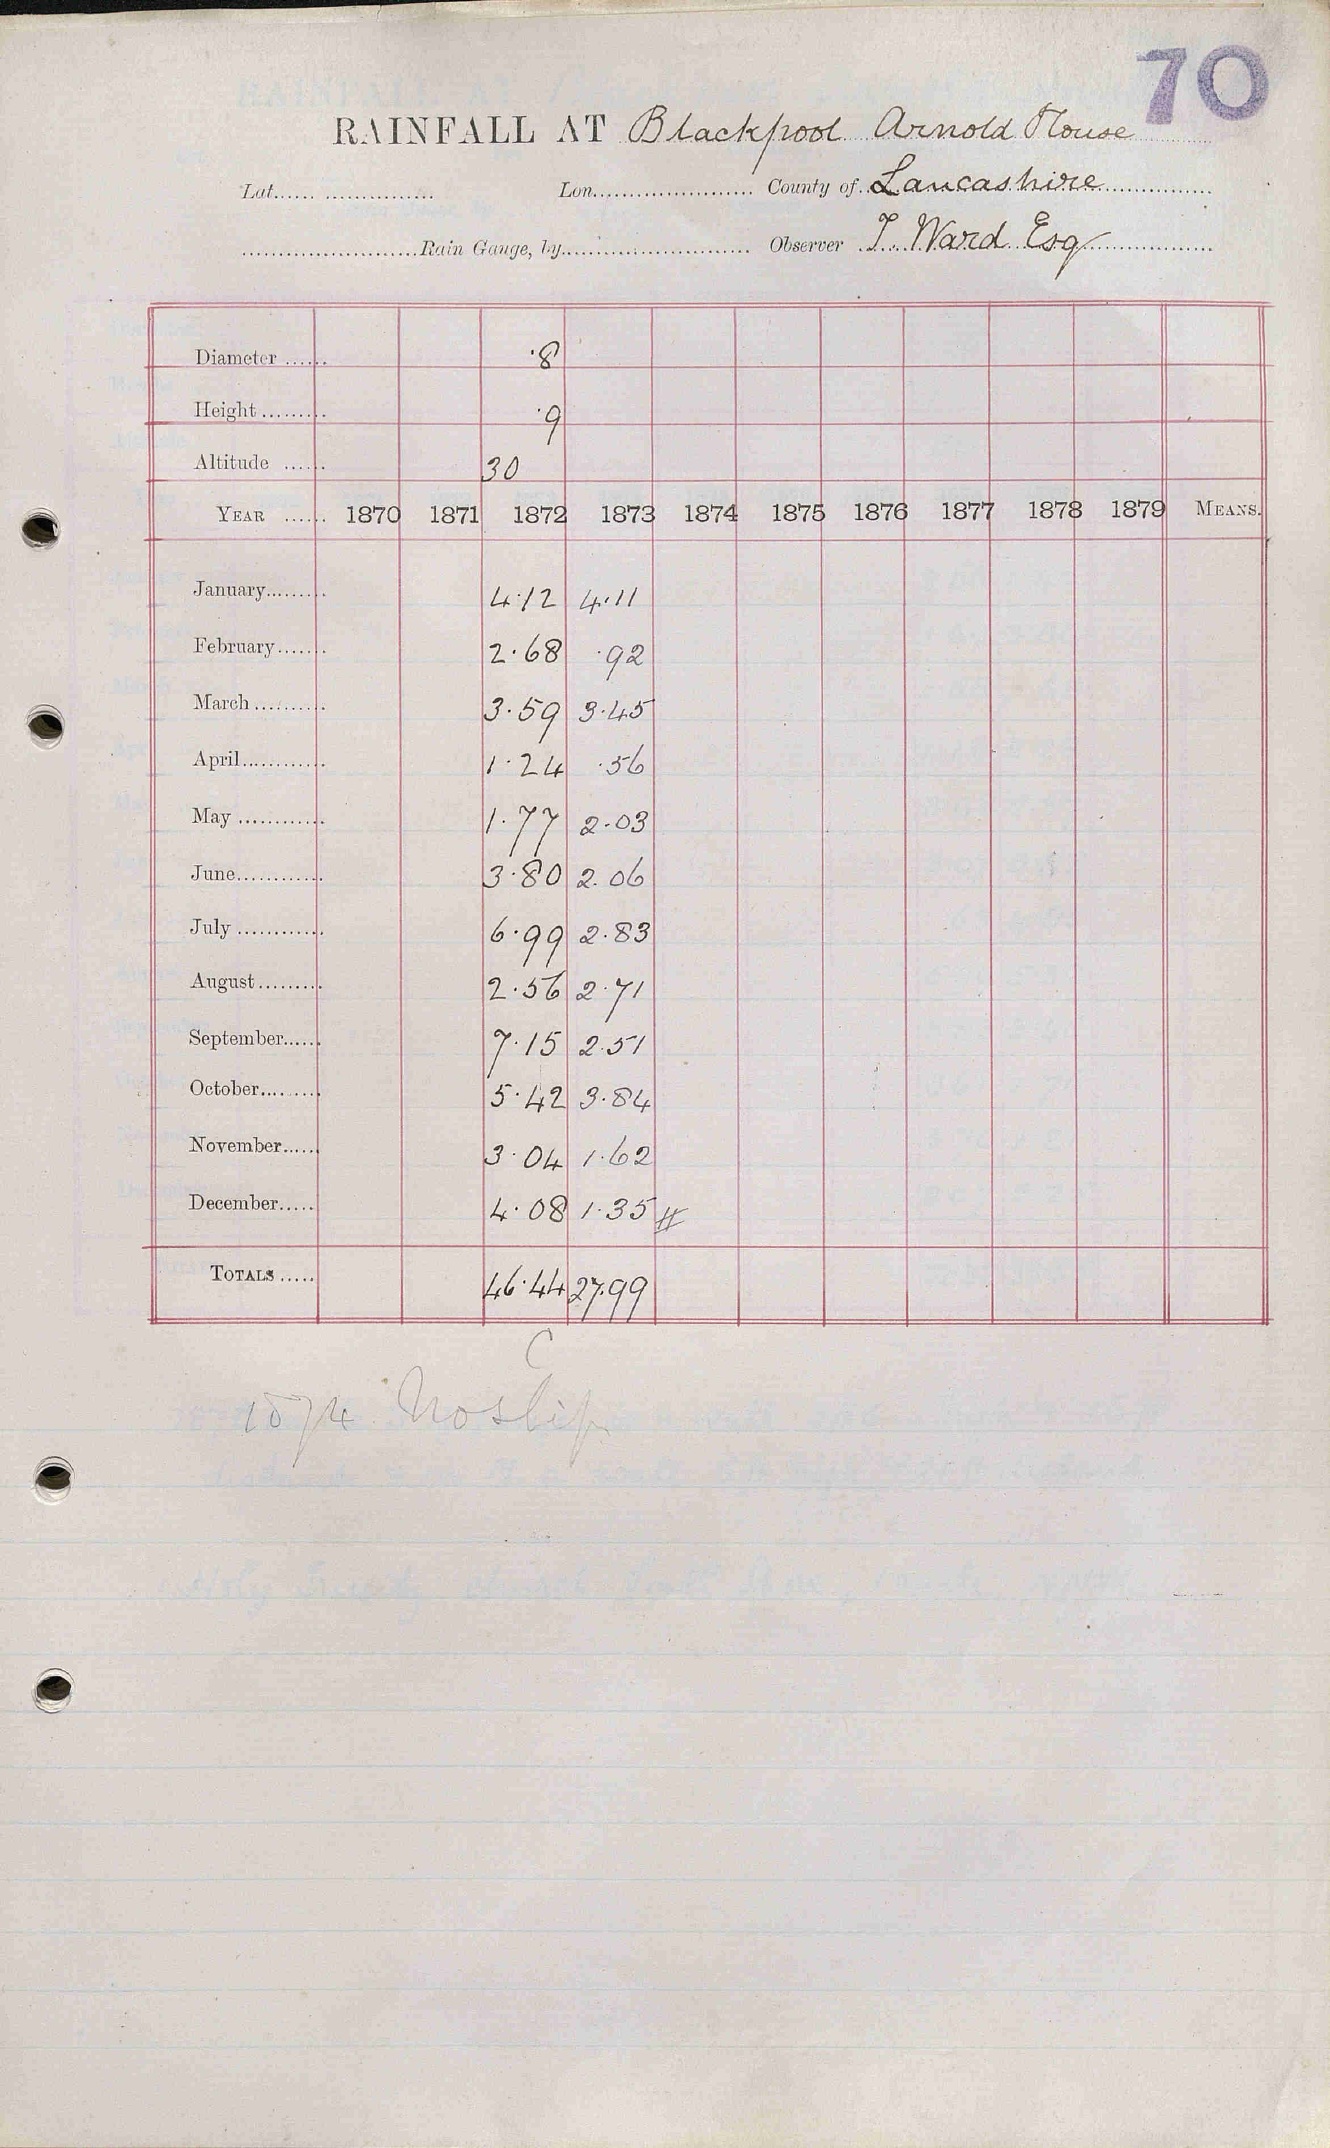 70
RAINFALL AT Blackpool Arnold House
Lat. Lon. County of Lancashire
Rain Gauge, by Observer T. Ward Esq
Diameter ...... ·8
Height ......... ·9
Altitude ...... 30
YEAR ...... 1870 1871 1872 1873 1874 1875 1876 1877 1878 1879 MEANS.
January......... 4·12 4·11
February....... 2·68 ·92
March........... 3·59 3·45
April............ 1·24 ·56
May ............ 1·77 2·03
June............ 3·80 2·06
July ............ 6·99 2·83
August......... 2·56 2·71
September...... 7·15 2·51
October......... 5·42 3·84
November...... 3·04 1·62
December..... 4·08 1·35 #
TOTALS ..... 46·44 27·99
C
1874 No slip